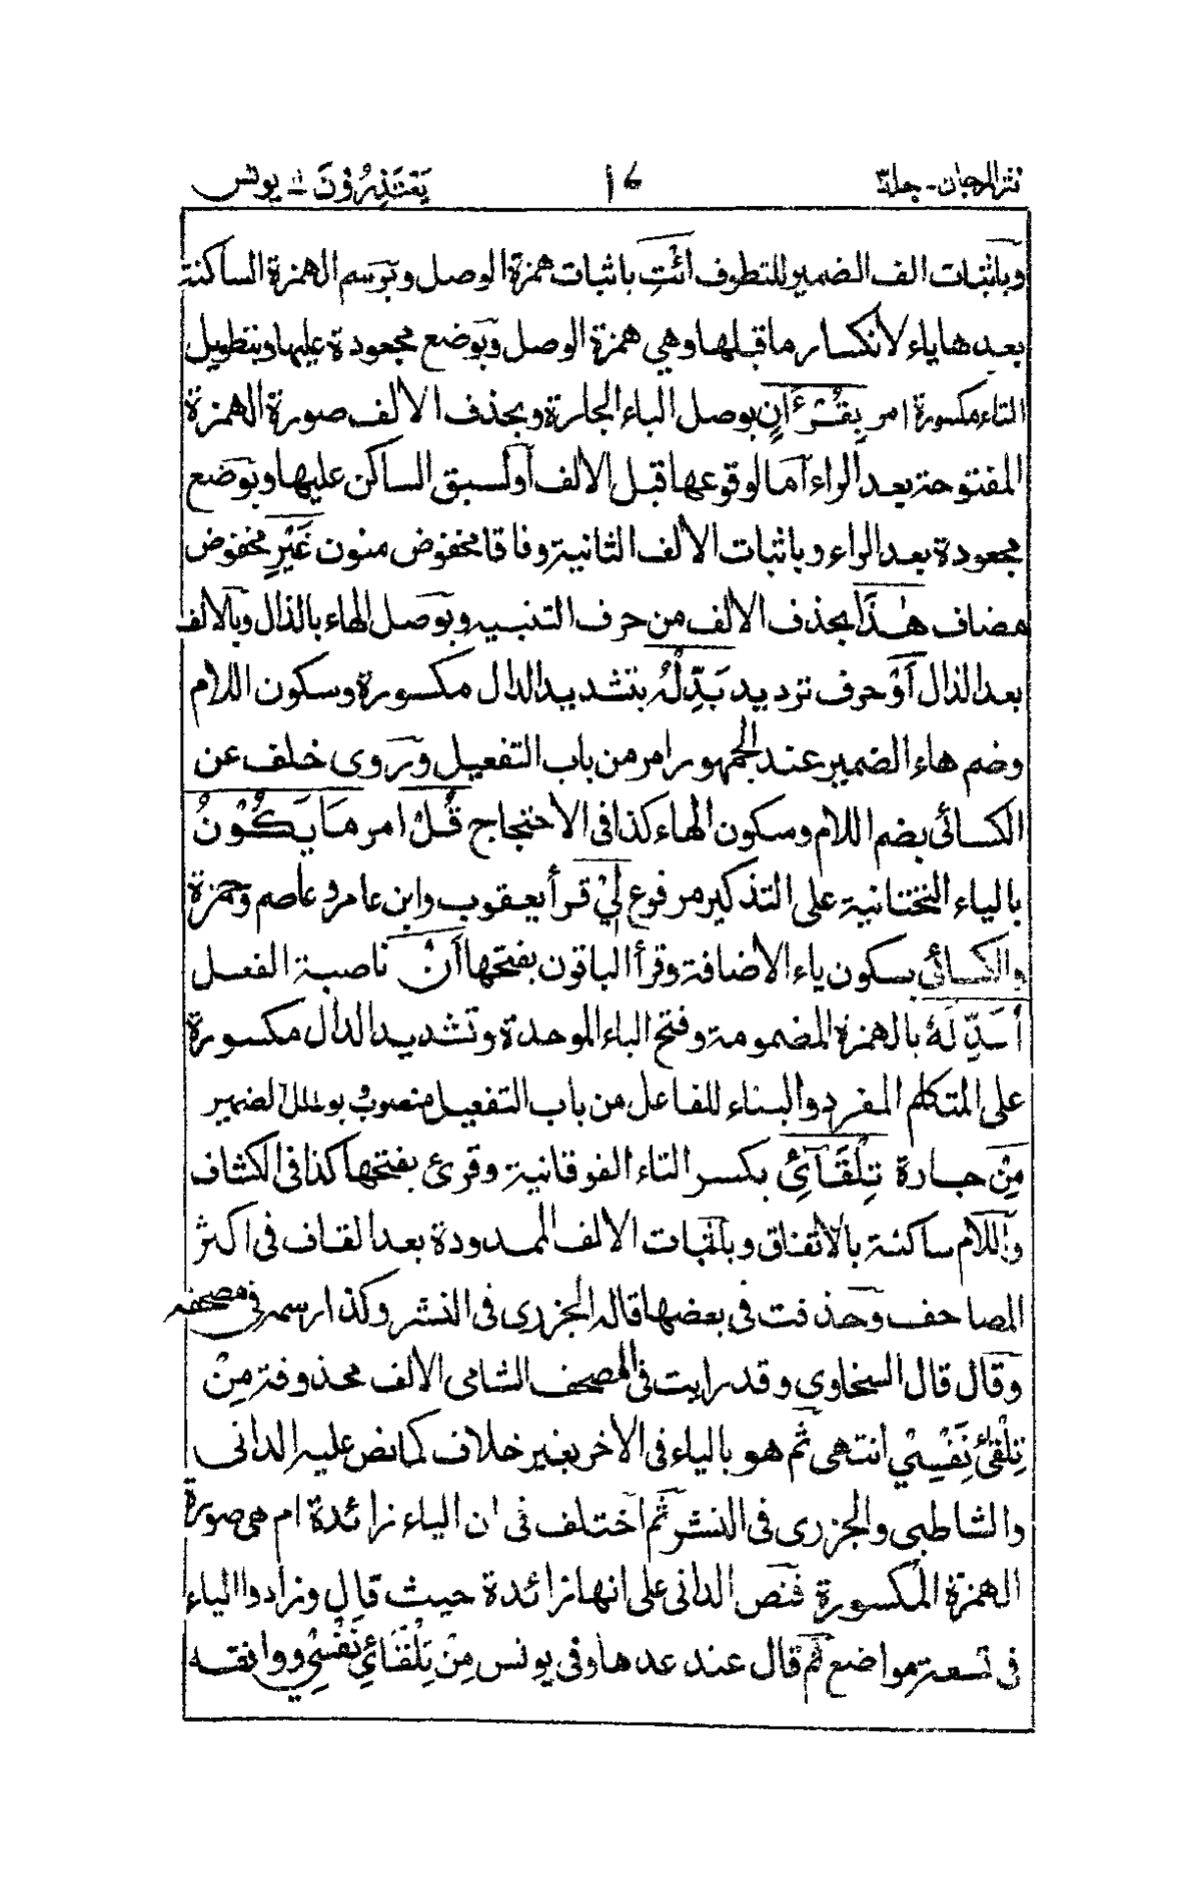 نثر المرجان - جلد ٣ ١٦ يَعْتَذِرُوْنَ ١١ يونس
وبإثبات الف الضمير للتطرف ائْتِ باثبات همزة الوصل وبرسم الهمزة الساكنة
بعدها ياء لانكسار ما قبلها وهي همزة الوصل وبوضع مجعودة عليها وبتطويل
التاء مكسورة امر بِقُرْءَانٍ بوصل الباء الجارة وبحذف الالف صورة الهمزة
المفتوحة بعد الراء اما لوقوعها قبل الالف اولسبق الساكن عليها وبوضع
مجعودة بعد الراء وباثبات الالف الثانية وفاقا مخفوض منون غَيْرِ مخفوض
مضاف هٰذَا بحذف الالف من حرف التنبيه وبوصل الهاء بالذال وبالالف
بعد الذال اَوْ حرف ترديد بَدِّلْهُ بتشديد الدال مكسورة وسكون اللام
وضم هاء الضمير عند الجمهور امر من باب التفعيل وروى خلف عن
الكسائي بضم اللام وسكون الهاء كذا في الاحتجاج قُلْ امر مَا يَكُوْنُ
بالياء التحتانية على التذكير مرفوع لِيْ قرأ يعقوب وابن عامر وعاصم وحمزة
والكسائي بسكون ياء الاضافة وقرأ الباقون بفتحها اَنْ ناصبة الفعل
اُبَدِّلَهُ بالهمزة المضمومة وفتح الباء الموحدة وتشديد الدال مكسورة
على المتكلم المفرد والبناء للفاعل من باب التفعيل منصوب بوصل الضمير
مِنْ جارة تِلْقَآئِ بكسر التاء الفوقانية وقرئ بفتحها كذا في الكشاف
واللام ساكنة بالاتفاق وباثبات الالف الممدودة بعد القاف في اكثر
المصاحف وحذفت في بعضها قاله الجزري في النشر وكذا رسمه في مصحفه
وقال قال السخاوي وقد رايت في المصحف الشامى الالف محذوفة مِنْ
تِلْقَئِ نَفْسِيْ انتهى ثم هو بالياء في الاخر بغير خلاف كما نص عليه الداني
والشاطبي والجزري في النشر ثم اختلف في ان الياء زائدة ام هي صورة
الهمزة المكسورة فنص الداني على انها زائدة حيث قال وزادوا الياء
في تسعة مواضع ثم قال عند عدها وفي يونس مِنْ تِلْقَائِ نَفْسِيْ ووافقه